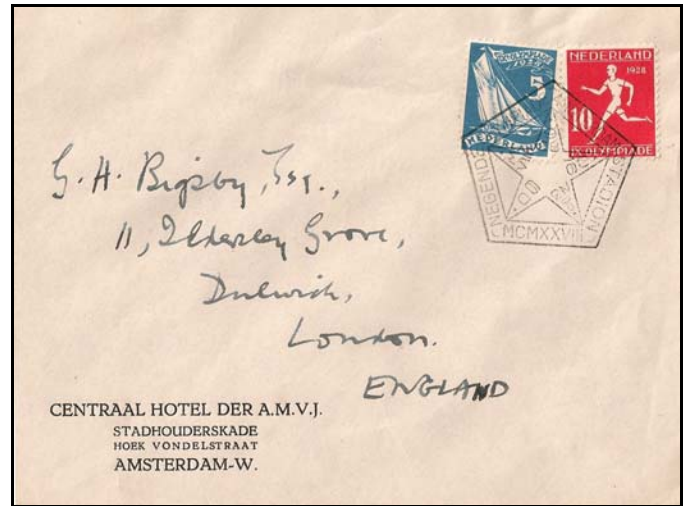 OLYMPIADE
1928
5
NEDERLAND
NEDERLAND
1928
10
IX OLYMPIADE
NEGENDE
STADION
MCMXXVIII
G. H. Bigsby, Esq.,
11, Ildersley Grove,
Dulwich,
London.
ENGLAND
CENTRAAL HOTEL DER A.M.V.J.
STADHOUDERSKADE
HOEK VONDELSTRAAT
AMSTERDAM-W.